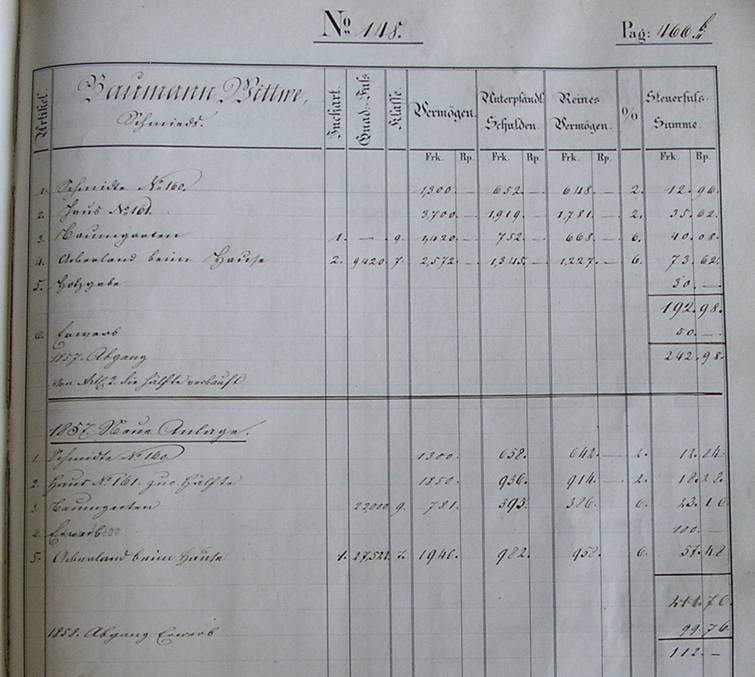 No. 148.
Pag: 466
Artikel.
Baumann, Wittwe,
Schmieds.
Juchart.
Quad.-Fuß
Klasse.
Vermögen.
Unterpfandl. Schulden.
Reines Vermögen.
%
Steuerfuß-Summe.
Frk. Rp. Frk. Rp. Frk. Rp. Frk. Rp.
1. Schmidte No 160. 1,300. — 652. — 648. — 2. 12. 96.
2. Haus No 161. 3,700. — 1,919. — 1,781. — 2. 35. 62.
3. Baumgarten 1. — 9. 1,420. — 752. — 668. — 6. 40. 08.
4. Ackerland beim Hause 2. 9420. 7. 2,572. — 1,345. — 1,227. — 6. 73. 62.
5. Holzgabe 30. —
192. 98.
6. Erwerb 50. —
1857. Abgang 242. 98.
von Art. 2. die Hälfte verkauft
1857. Neue Anlage.
1. Schmidte No 160. 1300. 658. 642. — 2. 12. 84.
2. Haus No 161. zur Hälfte 1850. 936. 914. — 2. 18. 28.
3. Baumgarten 22,000 9. 781. 395. 386. 6. 23. 16
4. Erwerb 100. —
5. Ackerland beim Hause 1. 27,522 7. 1940. 982. 958. 6. 57. 48
211. 76
1858. Abgang Erwerb 99. 76
112. —